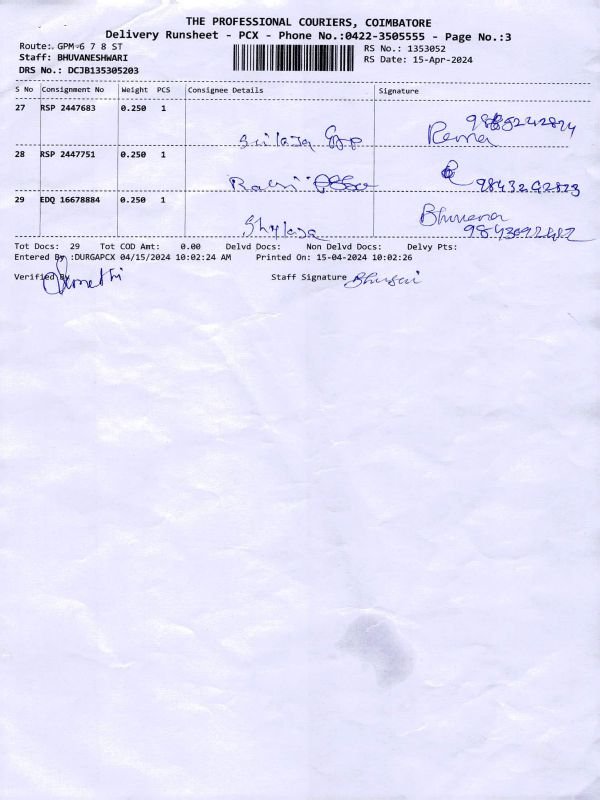 THE PROFESSIONAL COURIERS, COIMBATORE
Delivery Runsheet - PCX - Phone No.:0422-3505555 - Page No.:3
Route: GPM-6 7 8 ST
RS No.: 1353052
Staff: BHUVANESHWARI
RS Date: 15-Apr-2024
DRS No.: DCJB135305203
S No Consignment No Weight PCS Consignee Details Signature
27 RSP 2447683 0.250 1
Rema
28 RSP 2447751 0.250 1
29 EDQ 16678884 0.250 1
Shylaja Bhuvana
Tot Docs: 29 Tot COD Amt: 0.00 Delvd Docs: Non Delvd Docs: Delvy Pts:
Entered By :DURGAPCX 04/15/2024 10:02:24 AM Printed On: 15-04-2024 10:02:26
Verified By Staff Signature